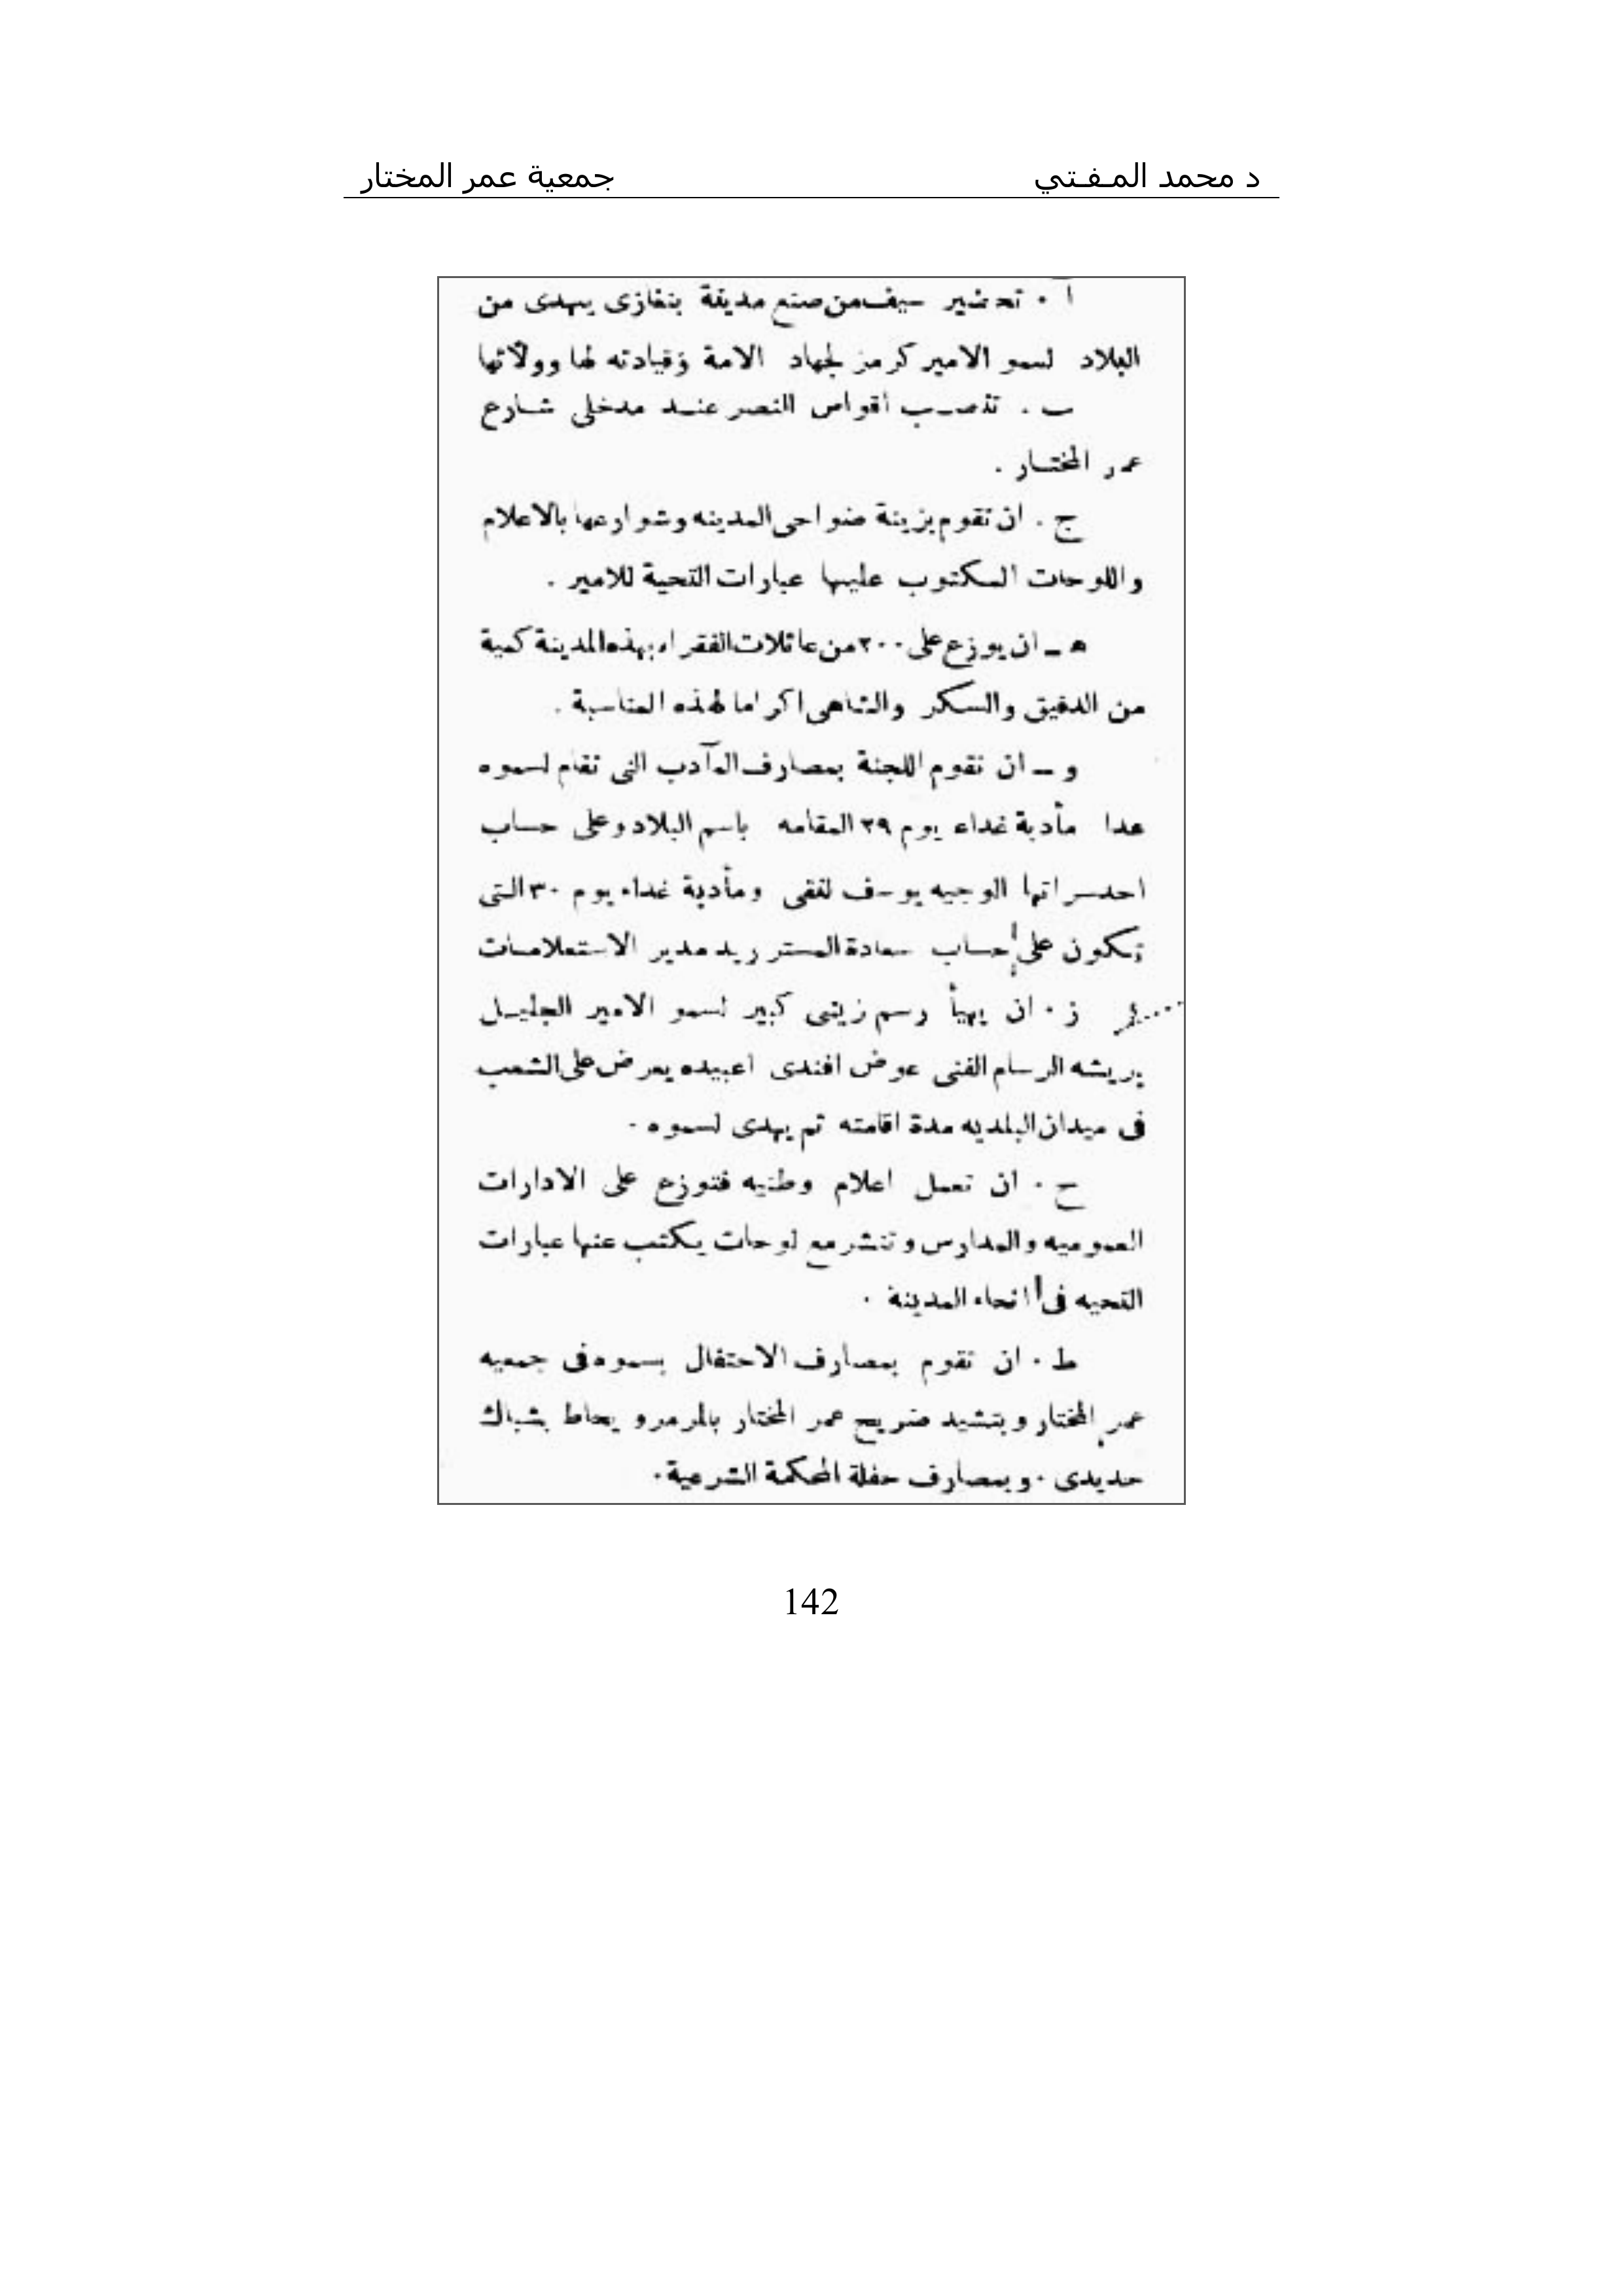 د محمد المـفـتي
جمعية عمر المختار
أ . تحضير سيف من صنع مدينة بنغازى يهدى من
البلاد لسمو الامير كرمز لجهاد الامة وقيادته لها وولائها
ب . تنصب اقواس النصر عند مدخلى شارع
عمر المختار .
ج . ان تقوم بزينة ضواحى المدينه وشوارعها بالاعلام
واللوحات المكتوب عليها عبارات التحية للامير .
ه – ان يوزع على ٢٠٠ من عائلات الفقراء بهذه المدينة كمية
من الدقيق والسكر والشاهى اكراما لهذه المناسبة .
و – ان تقوم اللجنة بمصارف المآدب التى تقام لسموه
عدا مأدبة غداء يوم ٢٩ المقامه باسم البلاد وعلى حساب
احد سراتها الوجيه يوسف لنقى ومأدبة غداء يوم ٣٠ التى
تكون على حساب سعادة المستر ريد مدير الاستعلامات
ز . ان يهيأ رسم زيتى كبير لسمو الامير الجليل
بريشه الرسام الفنى عوض افندى اعبيده يعرض على الشعب
فى ميدان البلديه مدة اقامته ثم يهدى لسموه .
ح . ان تعمل اعلام وطنيه فتوزع على الادارات
العموميه والمدارس وتنشر مع لوحات يكتب عنها عبارات
التحيه فى انحاء المدينة .
ط . ان تقوم بمصارف الاحتفال بسموه فى جمعيه
عمر المختار وبتشيد ضريح عمر المختار بالمرمر و يحاط بشباك
حديدى . و بمصارف حفلة المحكمة الشرعية .
142